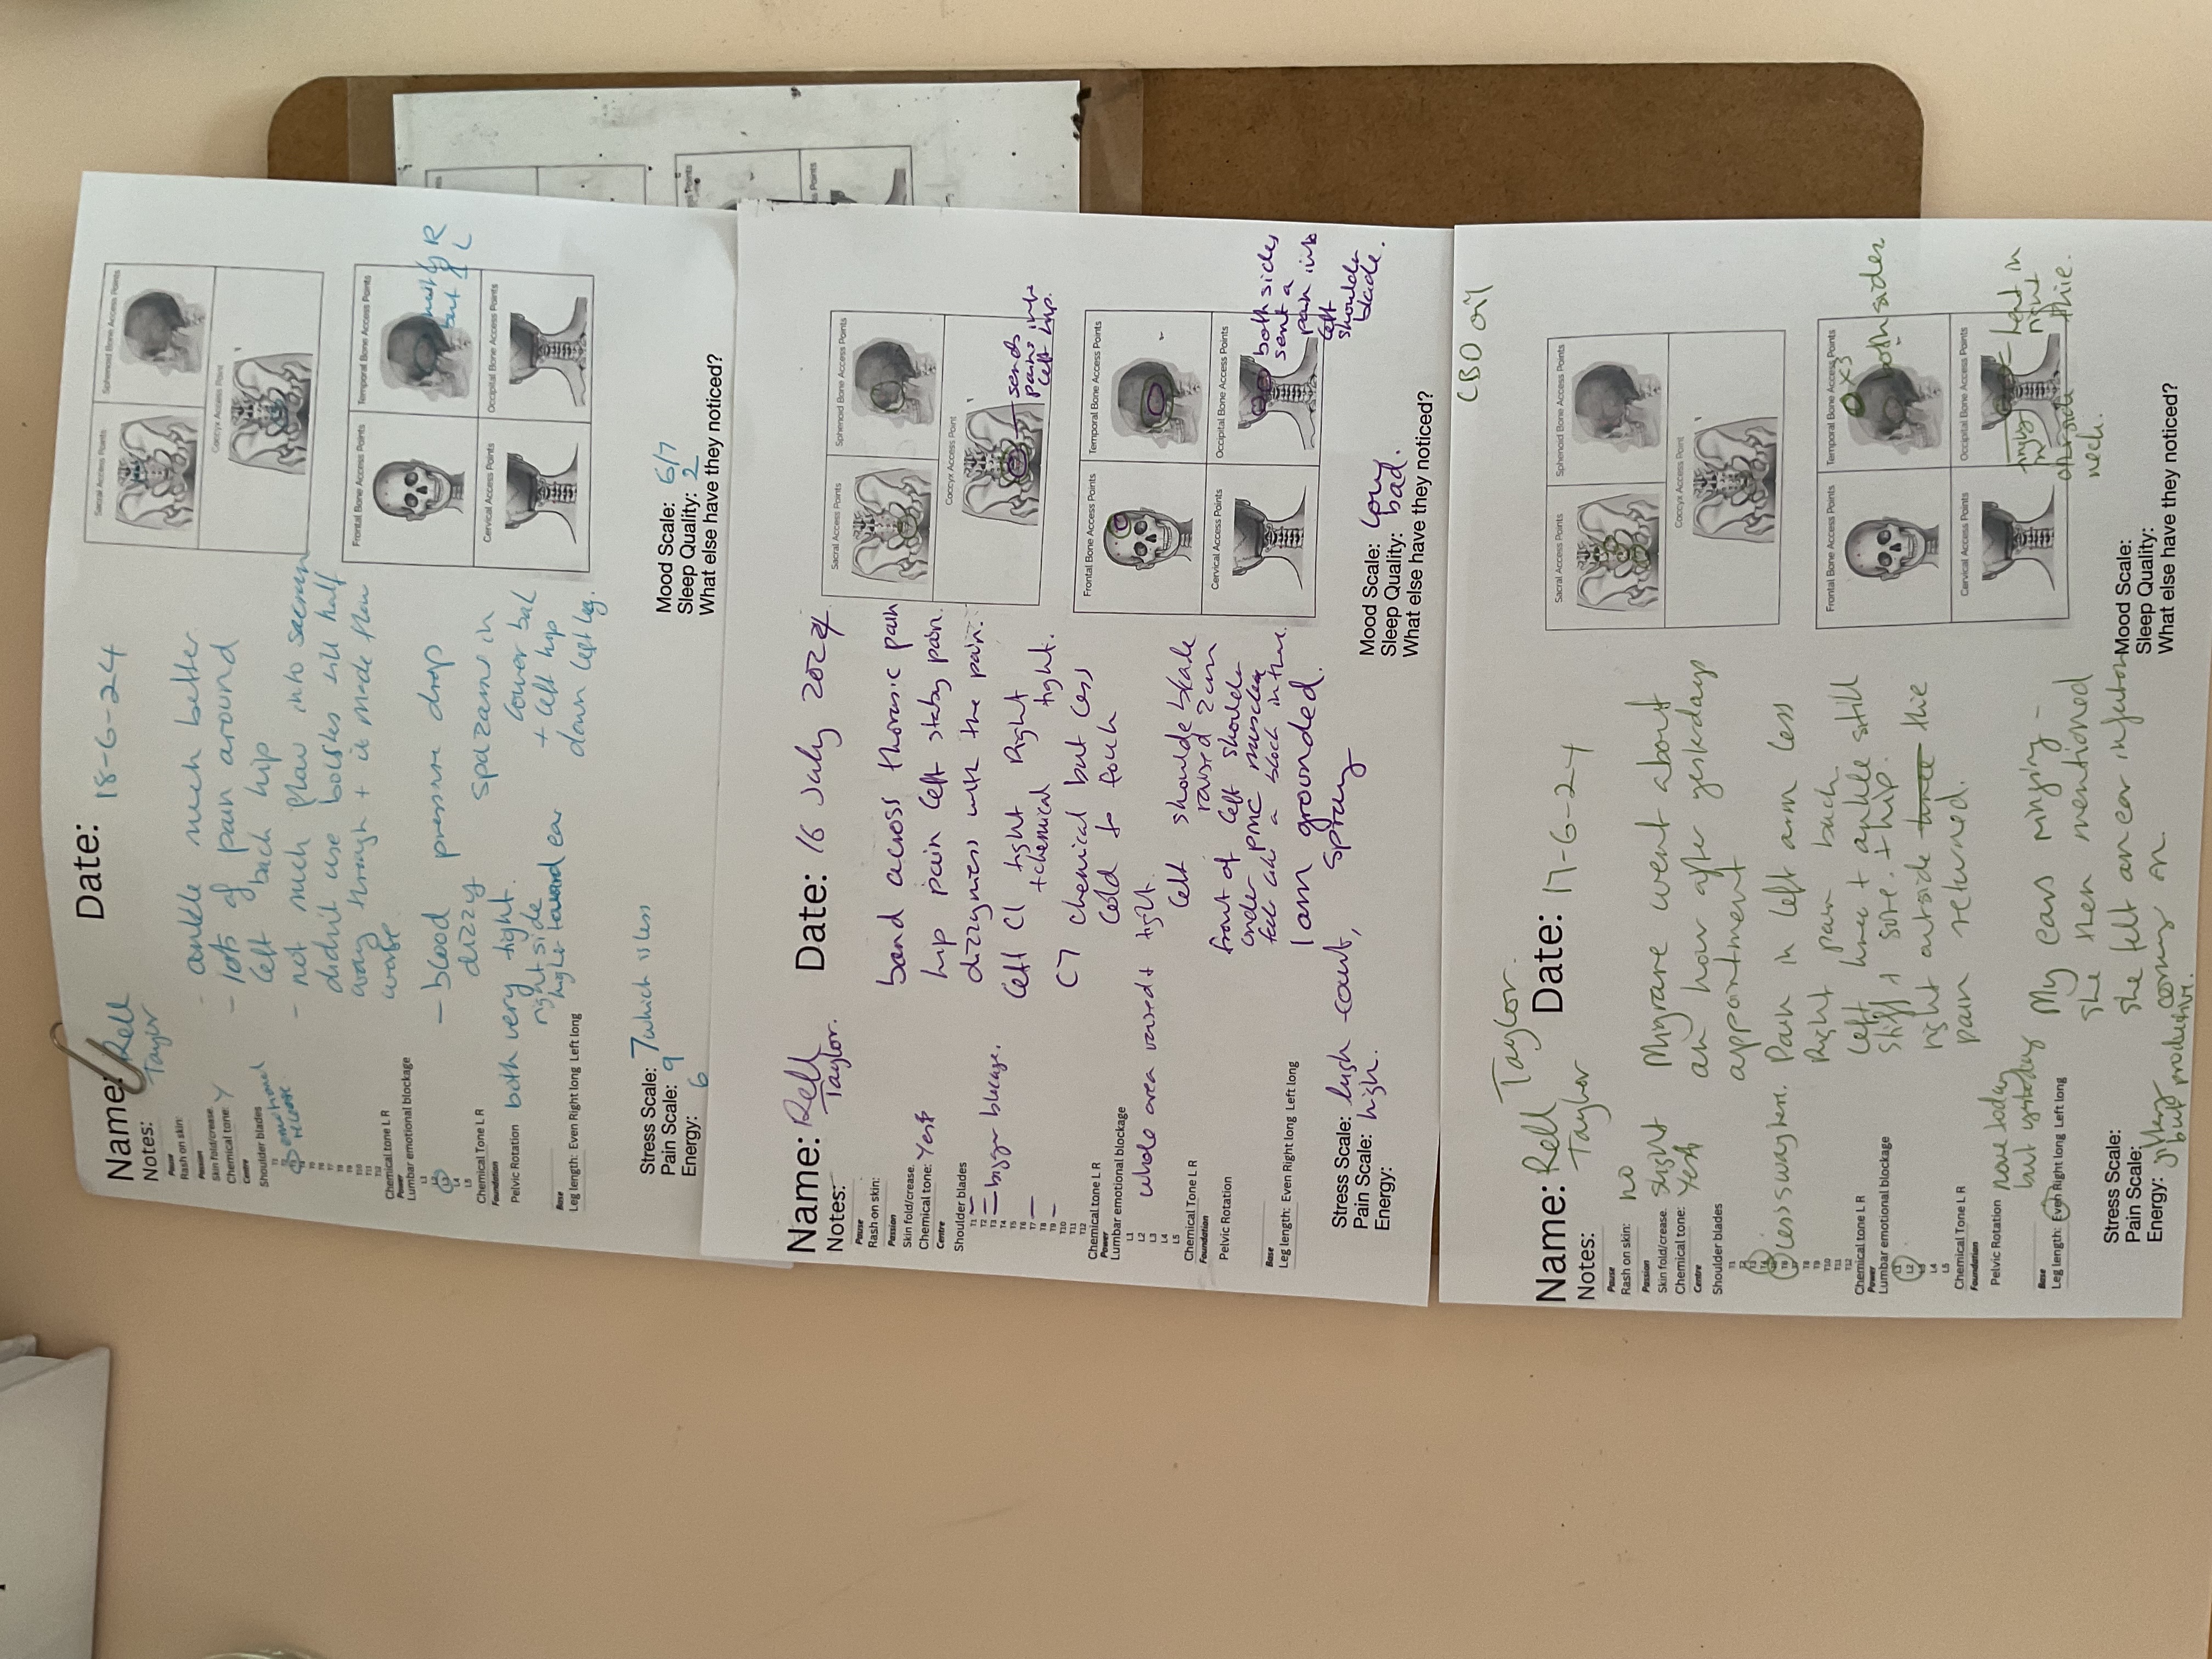 Name: Rell
Taylor
Date: 18-6-24
Notes:
- ankle much better
- lots of pain around
left back hip
- not much flow into sacrum
didn't use bolsters till half
way through + it made flow
worse
- blood pressure drop
dizzy
spazams in
lower bak
+ left hip
down left leg.
Pause
Rash on skin:
Passion
Skin fold/crease.
Chemical tone: Y
Centre
Shoulder blades
T1
emotional
release
T5
T6
T7
T8
T9
T10
T11
T12
Chemical tone L R
Power
Lumbar emotional blockage
L1
L2
L3
L4
L5
Chemical Tone L R
Foundation
Pelvic Rotation
both very tight.
right side
higher toward ear
Base
Leg length: Even Right long Left long
Stress Scale: 7 which is less
Pain Scale: 9
Energy: 6
Sacral Access Points
Sphenoid Bone Access Points
Coccyx Access Point
Frontal Bone Access Points
Temporal Bone Access Points
mostly R
but L
Cervical Access Points
Occipital Bone Access Points
Mood Scale: 6/7
Sleep Quality: 2
What else have they noticed?
Name: Rell
Taylor.
Date: 16 July 2024
Notes:
band across thoracic pain
hip pain left staby pain.
dizzyness with the pain.
Left C1 tight Right
+ chemical tight.
C7 chemical but less
cold to touch
Pause
Rash on skin:
Passion
Skin fold/crease.
Chemical tone: Yes
Centre
Shoulder blades
T1
T2
T3
bigger blockage.
T4
T5
T6
T7
T8
T9
T10
T11
T12
Chemical tone L R
Power
Lumbar emotional blockage
L1
L2
L3
L4
L5
whole area raised + tight
left shoulde blade
raised 2cm
front of left shoulder
under PMC muscles
felt like a block in there.
Chemical Tone L R
Foundation
Pelvic Rotation
I am grounded.
spray
Base
Leg length: Even Right long Left long
Stress Scale: high
Pain Scale: high.
Energy:
Sacral Access Points
Sphenoid Bone Access Points
Coccyx Access Point
sends
pains into
left hip.
Frontal Bone Access Points
Temporal Bone Access Points
Cervical Access Points
Occipital Bone Access Points
both sides
sent a
pain into
left
shoulder
blade.
Mood Scale: low
Sleep Quality: bad.
What else have they noticed?
CBD oil
Name: Rell Taylor.
Taylor
Date: 17-6-24
Notes:
Migrane went about
an hour after yesterdays
appointment
Pain in left arm less
Right pain back
Left knee + ankle still
stiff + sore. + hip.
right outside knee thie
pain returned.
Pause
Rash on skin: no
Passion
Skin fold/crease. slight
Chemical tone: Yes
Centre
Shoulder blades
T1
T2
T3
T4
T6
less sway here.
T8
T9
T10
T11
T12
Chemical tone L R
Power
Lumbar emotional blockage
L1
L2
L3
L4
L5
Chemical Tone L R
Foundation
Pelvic Rotation none today
but yesterday
My ears ringing -
she then mentioned
she felt an ear infection
coming on.
Base
Leg length: Even Right long Left long
Stress Scale:
Pain Scale:
Energy: jittery
but productive.
Sacral Access Points
Sphenoid Bone Access Points
Coccyx Access Point
Frontal Bone Access Points
Temporal Bone Access Points
x3
both sides
Cervical Access Points
Occipital Bone Access Points
heat in
right
thie.
other side
neck.
Mood Scale:
Sleep Quality:
What else have they noticed?